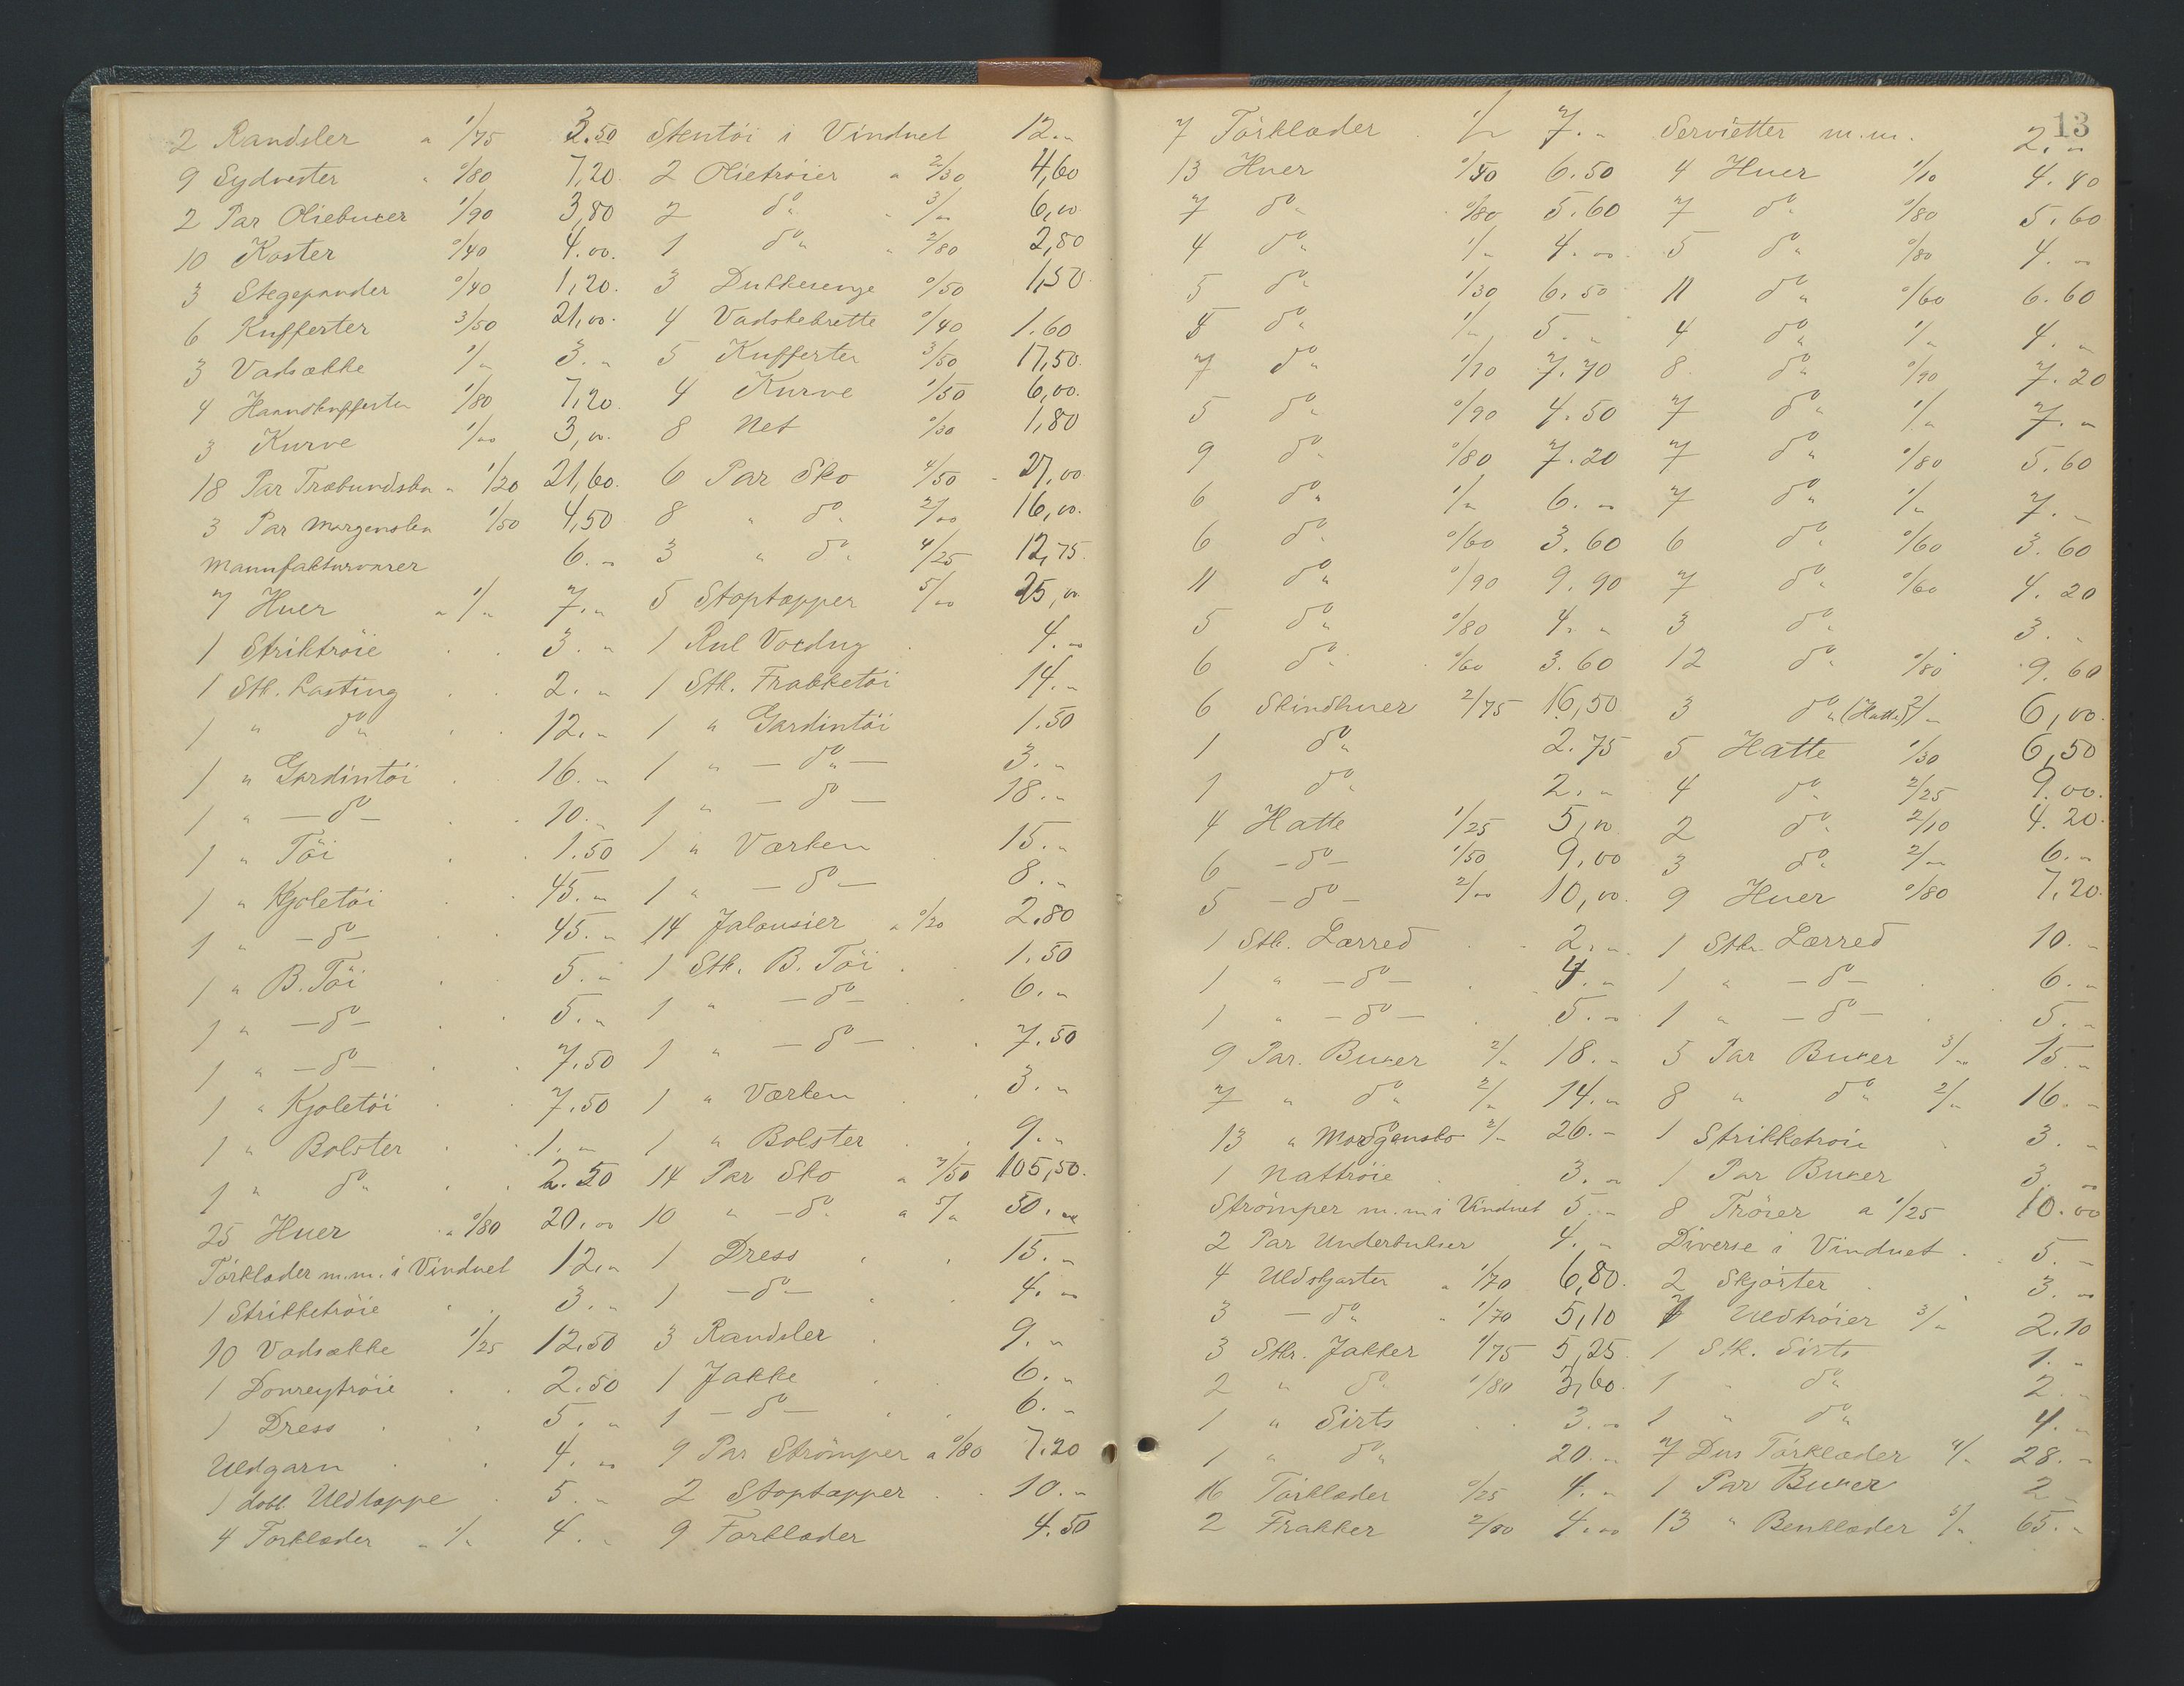 2 Randsler " 1/75 3.50
9 Sydvester " 0/80 7,20
2 Par Oliebuxer 1/90 3,80
10 Koster 0/40 4.00.
3 Stegepander 0/40 1,20.
6 Kufferter 3/50 21,00.
3 Vadsække 1/" 3."
4 Haandkufferter 1/80 7,20
3 Kurve 1/00 3,00.
18 Par Træbundsko " 1/20 21,60.
3 Par Morgensko 1/50 4,50
Manufakturvarer 6."
7 Huer " 1/" 7."
1 Striktröie 3."
1 Stk. Lasting 2."
1 " do" 12."
1 " Gardintöi 16."
1 " —do— 10."
1 " Töi 1.50
1 " Kjoletöi 45."
1 " —do— 45."
1 " B. Töi 5."
1 " —do— 5."
1 " —do— 7.50
1 " Kjoletöi 7.50
1 " Bolster 1."
1 " do" 2.50
25 Huer " 0/80 20.00
Törklæder m.m. i Vinduet 12."
1 Strikketröie 3."
10 Vadsække 1/25 12.50
1 Donreytröie 2.50
1 Dress 5."
Uldgarn 4."
1 dobb. Uldtæppe 5."
4 Törklæder " 1/" 4."
Stentöi i Vinduet 12."
2 Olietröier " 2/30 4,60
2 do" " 3/00 6,00
1 do" " 2/80 2,80
3 Dukkesenge 0/50 1,50
4 Vadskebrette 0/40 1.60
5 Kufferter 3/50 17,50.
4 Kurve 1/50 6,00.
8 Net 0/30 1,80
6 Par Sko 4/50 27,00
8 " do" 2/00 16,00.
3 " do" 4/25 12,75.
5 Stoptæpper 5/00 25,00
1 Rul Voxdug 4."
1 Stk. Frakketöi 14."
1 " Gardintöi 1.50
1 " —do"— 3."
1 " —do— 18."
1 " Værken 15."
1 " —do— 8."
14 Jalousier " 0/20 2.80
1 Stk. B. Töi 1.50
1 " —do— 6."
1 " —do— 7.50
1 " Værken 3."
1 " Bolster 9."
14 Par Sko " 7/50 105,50.
10 " —do" a 5/" 50."
1 Dress 15."
1 —do— 4."
3 Randsler 9."
1 Jakke 6."
1 —do— 6."
9 Par Strömper a 0/80 7.20
2 Stoptæpper 10."
9 Torklæder 4.50
13
7 Törklæder 1/" 7."
13 Huer 0/50 6.50
7 do" 0/80 5.60
4 do" 1/" 4."
5 do" 1/30 6.50
5 do" 1/" 5."
7 do" 1/10 7.70
5 do" 0/90 4.50
9 do" 0/80 7.20
6 do" 1/" 6."
6 do" 0/60 3.60
11 do" 0/90 9.90
5 do" 0/80 4."
6 do" 0/60 3.60
6 Skindhuer 2/75 16,50
1 do" 2.75
1 do" 2."
4 Hatte 1/25 5,00
6 —do— 1/50 9,00
5 —do— 2/00 10,00.
1 Stk. Lærred 2."
1 " —do— 4."
1 " —do— 5."
9 Par. Buxer 2/" 18."
7 " do" 2/" 14."
13 " Morgensko 2/" 26."
1 Nattröie 3."
Strömper m.m i Vinduet 5."
2 Par Underbukser 4."
4 Uldskjorter " 1/70 6,80.
3 —do" " 1/70 5,10
3 Stkr. Jakker 1/75 5,25
2 " do" 1/80 3,60.
1 " Sirts 3."
1 " do" 20."
16 Törklæder 0/25 4."
2 Frakker 2/00 4.00
Servietter m.m. 2."
4 Huer 1/10 4.40
7 do" 0/80 5.60
5 do" 0/80 4."
11 do" 0/60 6.60
4 do" 1/" 4."
8 do" 0/90 7.20
7 do" 1/" 7."
7 do" 0/80 5.60
7 do" 1/" 7."
6 do" 0/60 3.60
7 do" 0/60 4.20
3 do" 3."
12 do" 0/80 9.60
3 do" (Hatte) 2/" 6,00.
5 Hatte 1/30 6,50
4 do" 2/25 9.00.
2 do" 2/10 4.20.
3 do" 2/" 6."
9 Huer 0/80 7,20.
1 Stk. Lærred 10."
1 " —do— 6."
1 " —do— 5."
5 Par Buxer 3/" 15."
8 " do" 2/" 16."
1 Strikketroie 3."
1 Par Buxer 3."
8 Tröier a 1/25 10.00
Diverse i Vinduet 5."
2 Skjörter 3."
Uldtröier 3/" 2.10
1 Stk. Sirts 1."
1 " do" 2."
1 " do" 4."
7 Dus Törklæder 4/" 28."
1 Par Buxer 2"
13 " Benklæder 5/" 65."